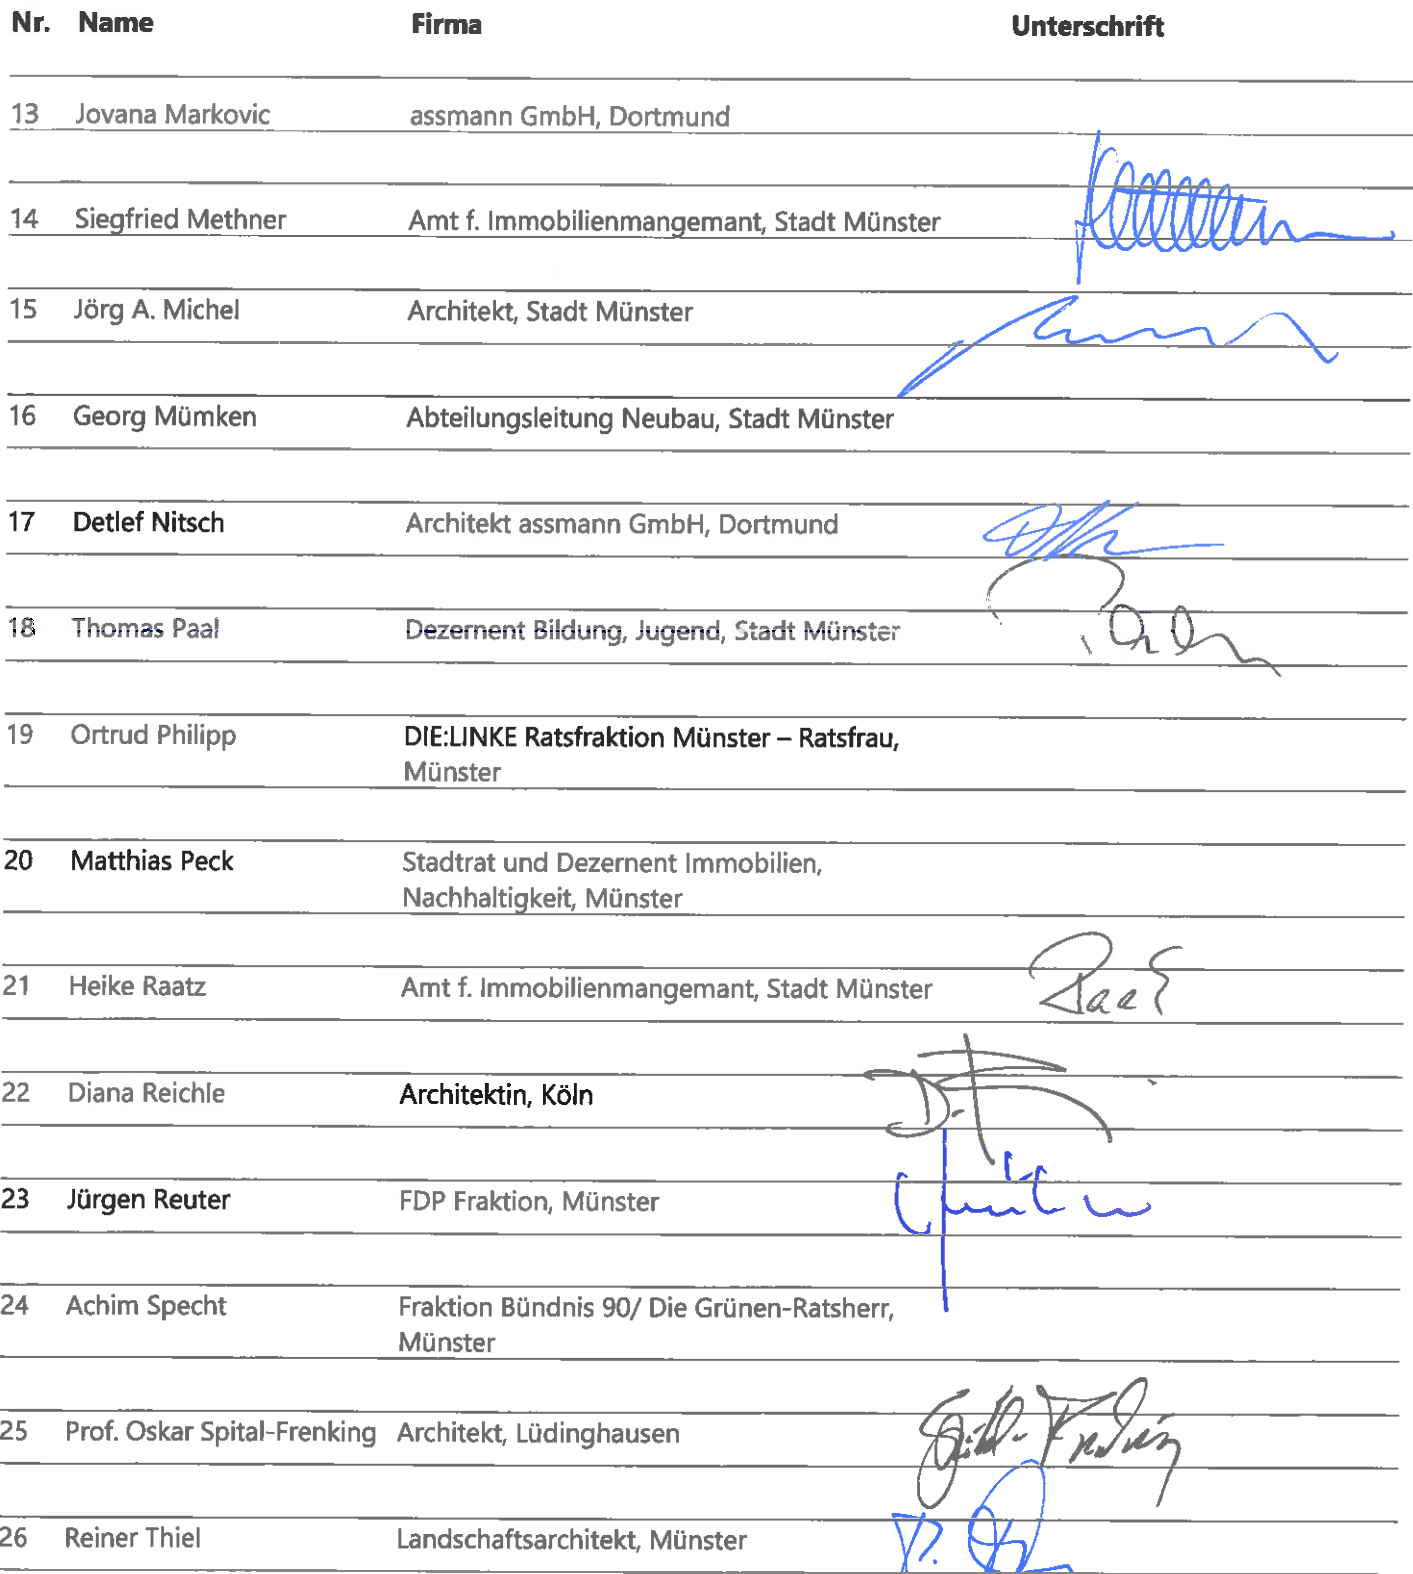 Nr. Name Firma Unterschrift
13 Jovana Markovic assmann GmbH, Dortmund
14 Siegfried Methner Amt f. Immobilienmangemant, Stadt Münster
15 Jörg A. Michel Architekt, Stadt Münster
16 Georg Mümken Abteilungsleitung Neubau, Stadt Münster
17 Detlef Nitsch Architekt assmann GmbH, Dortmund
18 Thomas Paal Dezernent Bildung, Jugend, Stadt Münster
19 Ortrud Philipp DIE:LINKE Ratsfraktion Münster – Ratsfrau,
Münster
20 Matthias Peck Stadtrat und Dezernent Immobilien,
Nachhaltigkeit, Münster
21 Heike Raatz Amt f. Immobilienmangemant, Stadt Münster
22 Diana Reichle Architektin, Köln
23 Jürgen Reuter FDP Fraktion, Münster
24 Achim Specht Fraktion Bündnis 90/ Die Grünen-Ratsherr,
Münster
25 Prof. Oskar Spital-Frenking Architekt, Lüdinghausen
26 Reiner Thiel Landschaftsarchitekt, Münster